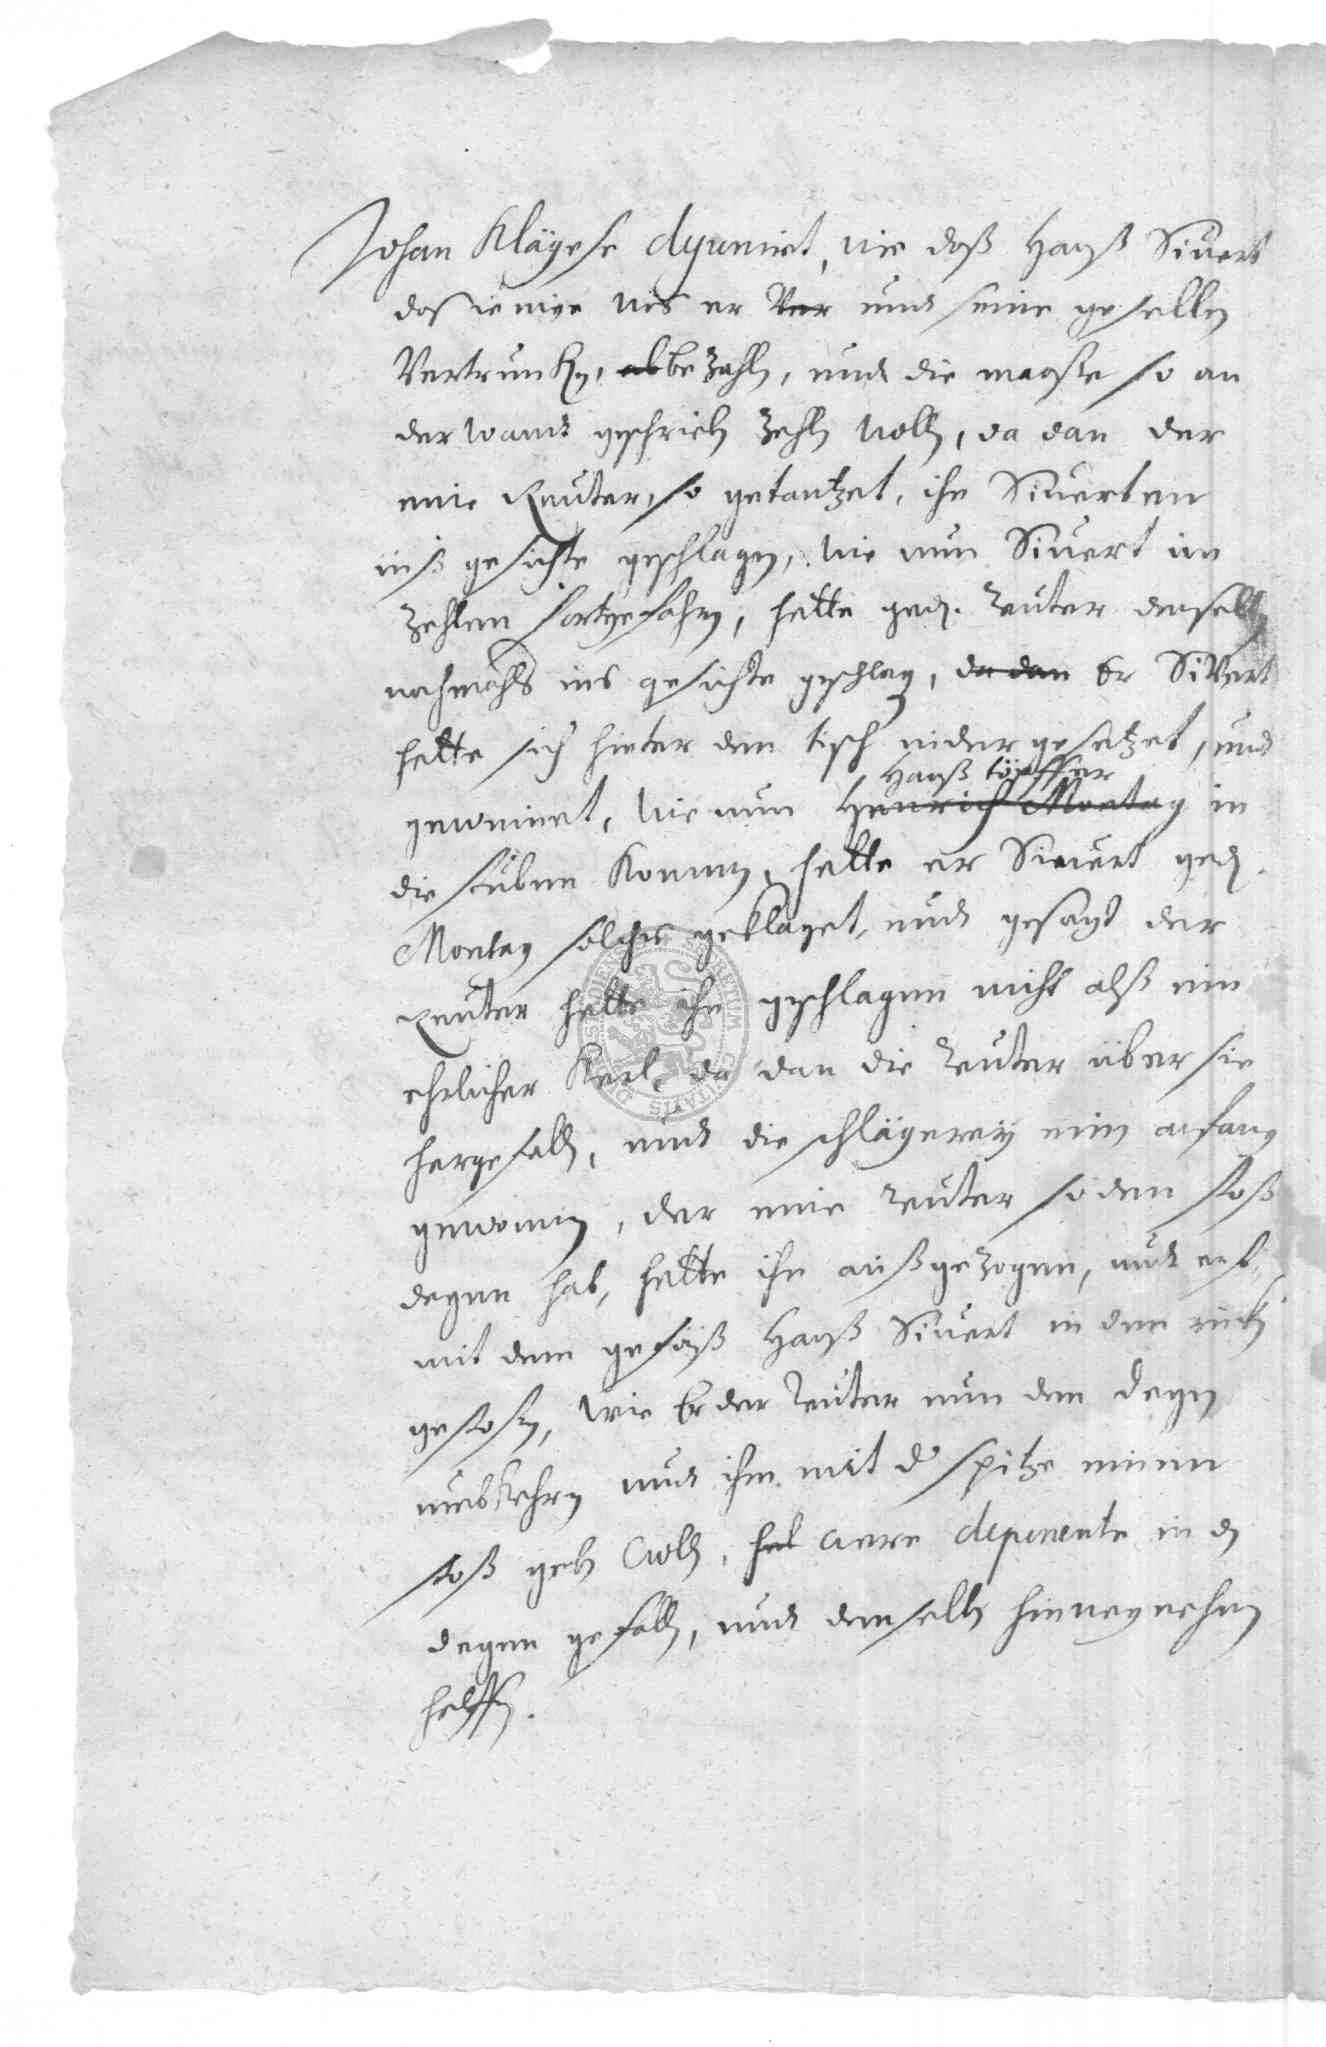 Johan Klägese deponirt, wie daß Hanß Sivert
dasienige was er Ver und seine gesellen
Vertruncken, ab bezahlen, und die maaße so an
der wandt geschrieben zehlen wollen, da dan der
eine Reuter, so getantzet, ihn Siverten
inß gesichte geschlagen, wie nun Sivert im
zehlen fortgefahren, hette ged. Reuter denselben
nochmahls ins gesichte geschlagen, da dan Er Sivert
hette sich hinter den tisch nider gesetzet, und
Hanß töpffer
geweinet, wie nun Henrich Montag in
die stuben kommen, hette er Sivert ged.
Montag solches geklaget, und gesagt der
Reuter hette ihn geschlagen nicht alß ein
ehrlicher Kerl, da dan die Reuter über sie
hergefallen, und die schlägerey ein anfang
gewonnen, der eine Reuter so den stoß
degen hat, hette ihn außgezogen, und erst
mit dem gefäß Hanß Sivert in den rücken
gestoßen, wie Er der Reuter nun den degen
umbkehren und ihm mit der spitze einen
stoß geben wollen, hat were deponente in den
degen gefallen, und denselben hinwegnehmen
helffen.